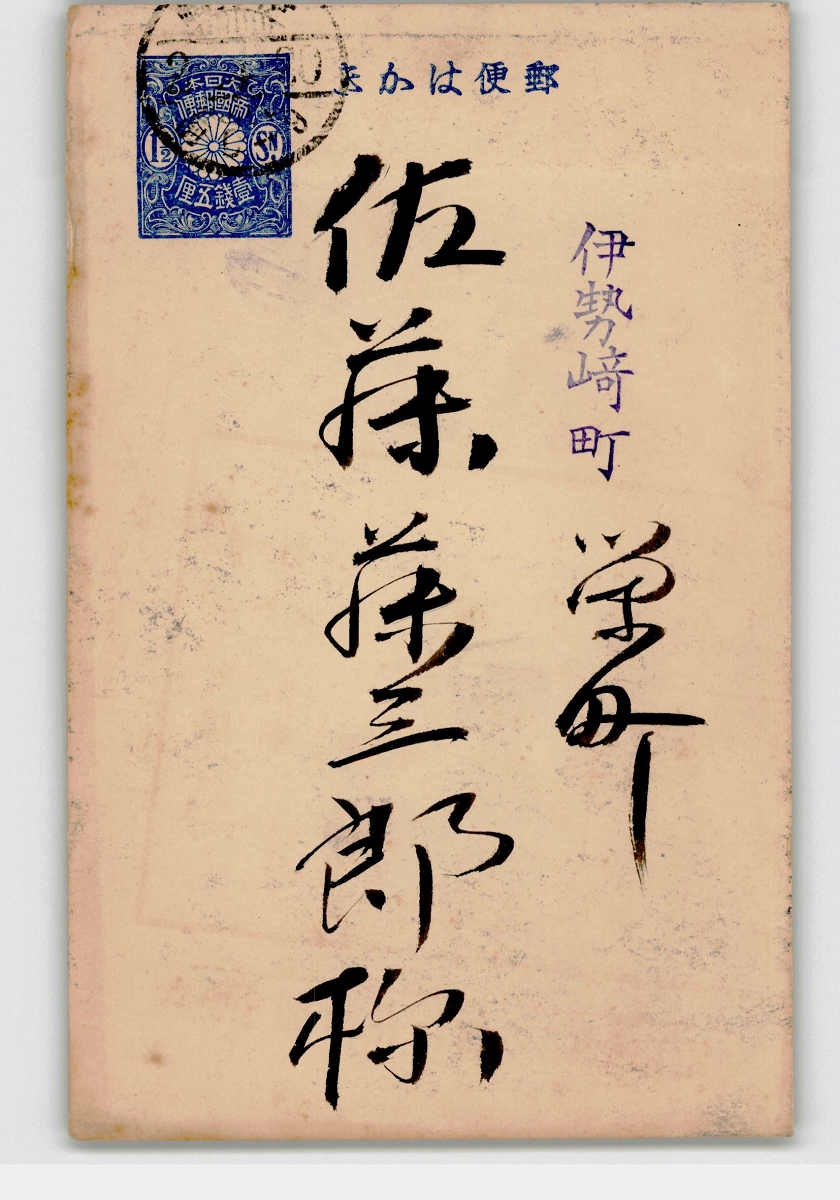 郵便はかき
大日本
帝國郵便
1½ Sn
壹錢五厘
伊勢崎町
栄町
佐藤藤三郎様